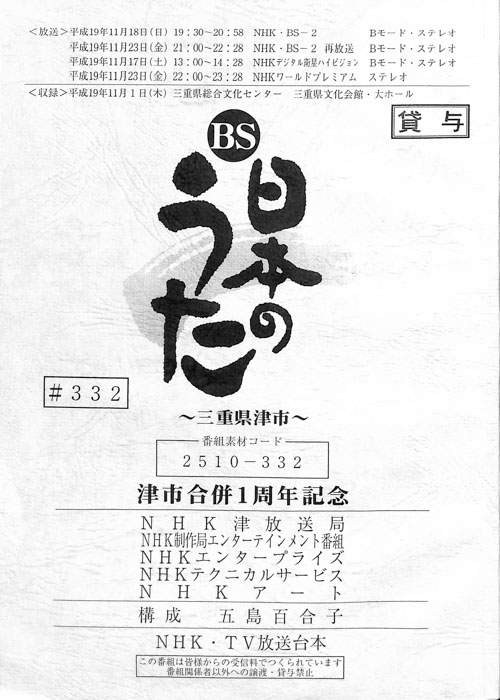 <放送>平成19年11月18日(日) 19:30~20:58 NHK・BS-2 Bモード・ステレオ
平成19年11月23日(金) 21:00~22:28 NHK・BS-2 再放送 Bモード・ステレオ
平成19年11月17日(土) 13:00~14:28 NHKデジタル衛星ハイビジョン Bモード・ステレオ
平成19年11月23日(金) 22:00~23:28 NHKワールドプレミアム ステレオ
<収録>平成19年11月1日(木) 三重県総合文化センター 三重県文化会館・大ホール
貸与
BS
日本の
うた
#332
~三重県津市~
番組素材コード
2510-332
津市合併1周年記念
NHK津放送局
NHK制作局エンターテインメント番組
NHKエンタープライズ
NHKテクニカルサービス
NHKアート
構成 五島百合子
NHK・TV放送台本
この番組は皆様からの受信料でつくられています
番組関係者以外への譲渡・貸与禁止